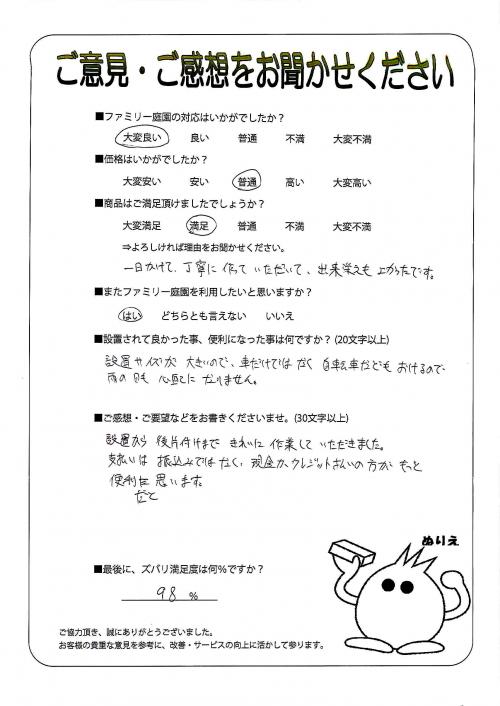 ご意見・ご感想をお聞かせください
■ファミリー庭園の対応はいかがでしたか？
大変良い 良い 普通 不満 大変不満
■価格はいかがでしたか？
大変安い 安い 普通 高い 大変高い
■商品はご満足頂けましたでしょうか？
大変満足 満足 普通 不満 大変不満
⇒よろしければ理由をお聞かせください。
一日かけて、丁寧に作っていただいて、出来栄えも上々だったです。
■またファミリー庭園を利用したいと思いますか？
はい どちらとも言えない いいえ
■設置されて良かった事、便利になった事は何ですか？(20文字以上)
設置サイズが大きいので、車だけではなく自転車などもおけるので
雨の日も心配になりません。
■ご感想・ご要望などをお書きくださいませ。(30文字以上)
設置から後片付けまできれいに作業していただきました。
支払いは振込みではなく、現金かクレジット払いの方がもっと
便利だと思います。
ぬりえ
■最後に、ズバリ満足度は何％ですか？
98 ％
ご協力頂き、誠にありがとうございました。
お客様の貴重な意見を参考に、改善・サービスの向上に活かして参ります。